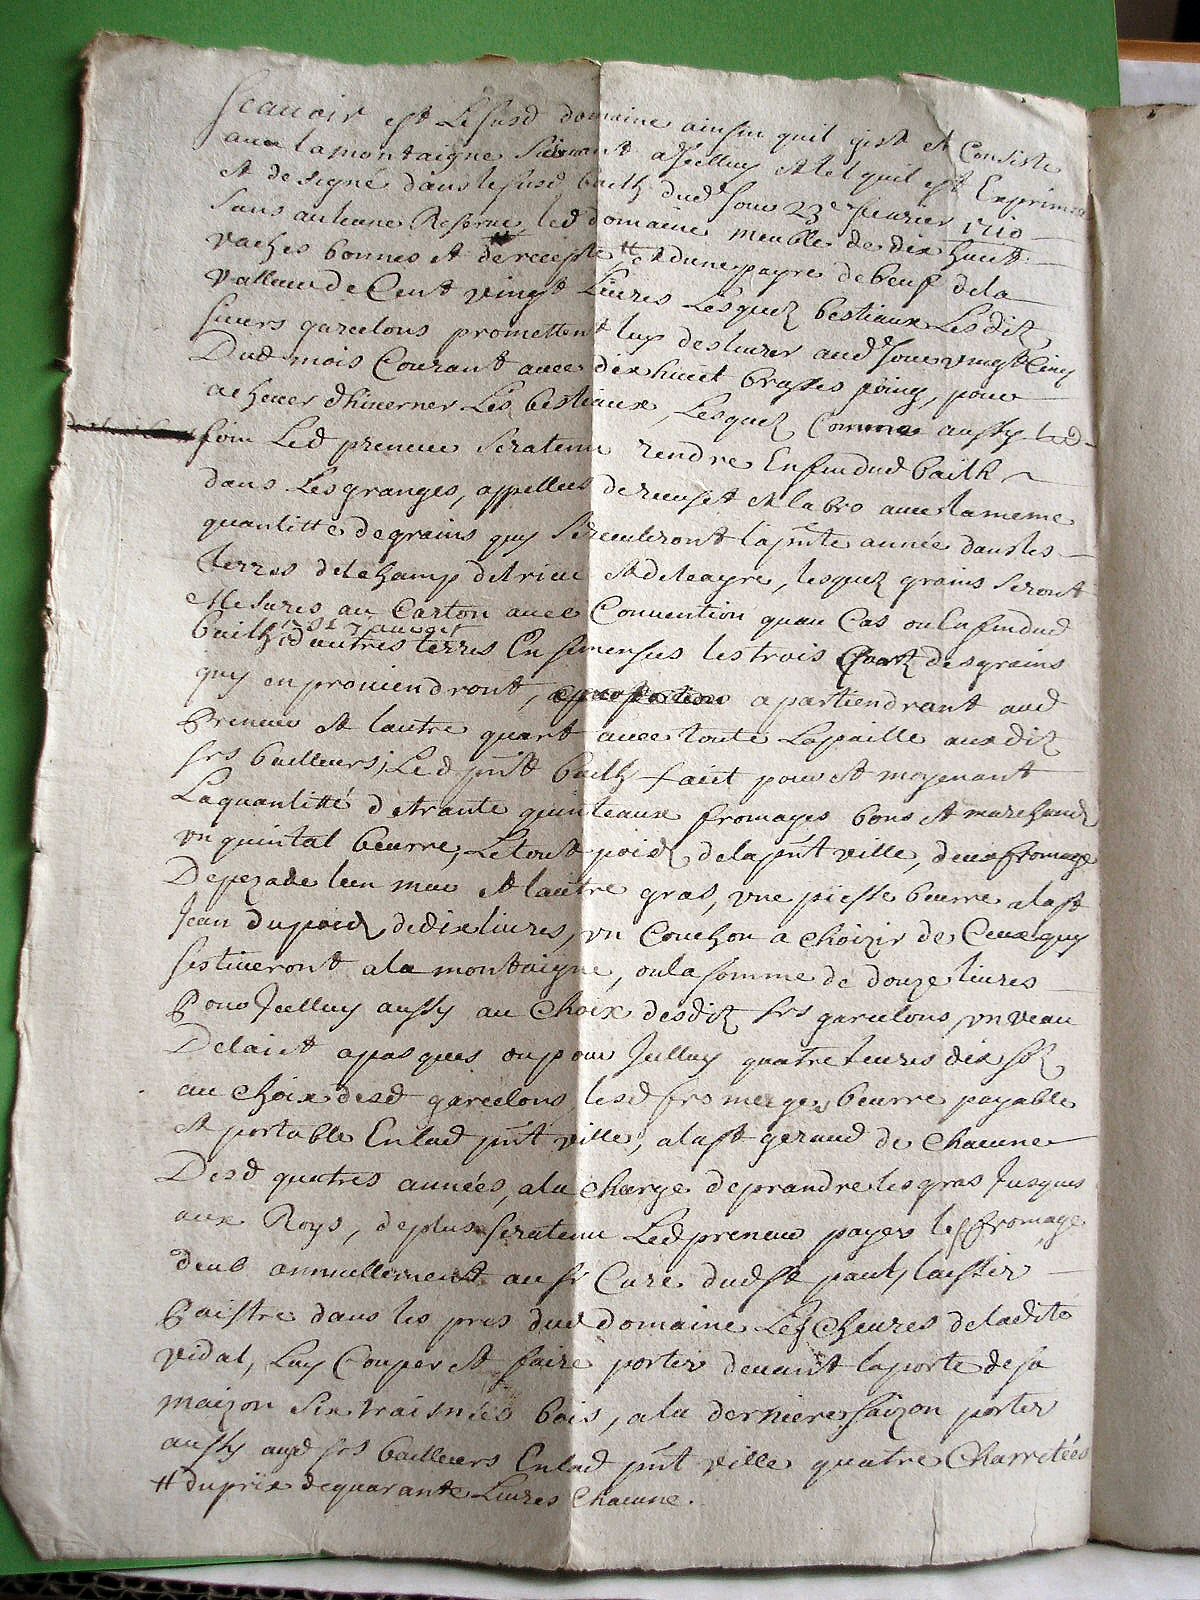 scauoir est Le susd domaine ainsin quil gist et Consiste
auec la montaigne Suiuant a Jcelluy et tel quil est Exprimé
et designé dans le susd bailh dud Jour 23e feurier 1710
sans aulcune Reserue, led domaine meublé de dix huit
vaches bonnes et de recepte # et dune payre de beuf de la
valleur de Cent vingt Liures Lesquelz bestiaux Les ditz
sieurs garcelons promettent luy desliurer aud Jour vingt Cinq
Dud mois Courant auec dix huict brasses foing, pour
acheuer dhiuerner Les bestiaux, Lesquelz Comme aussy led
foin Led preneur sera tenu rendre En fin dud bailh
dans Les granges, appellees de et la bro auec la meme
quantitté de grains quy se la pnte année dans les
terres de le champ del riue et de leayre, lesquelz grains seront
Mesures au Carton auec Conuention quau Cas ou En fin dud
bailh il sy trouuat
dautres terres En semences les trois quartz des grains
quy en prouiendront, apartiendront aud
Preneur et lautre quart auec toute La paille aux ditz
srs bailleurs; Led pnt bailh faict pour et moyenant
La quantitté de trante quinteaux fromages bons et marchandz
vn quintal beurre, Le tout poidz de la pnt ville, deux fromages
De pezade lun mau et lautre gras, vne piesse beurre a la st
Jean du poidz de dix liures, vn Couchon a choizir de Ceux quy
sestiueront a la montaigne, ou la somme de douze liures
Pour Jcelluy aussy au Choix desditz srs garcelons, vn veau
De laict a pasques ou pour Jcelluy quatre liures dix solz
au choix desd garcelons, lesd fromerges, beurre payable
et portable En lad pnt ville, a la st geraud de Chacune
Desd quatres années, a la charge de prandre les gras Jusques
aux Roys, de plus sera tenu Led preneur payer le fromage
deub annuellement au sr Cure dud st paul, laisser
Paistre dans les pres dud domaine Les cheures de ladite
vidal, Luy Couper et faire porter deuant la porte de sa
maizon six traisnées bois, a la derniere saizon porter
aussy auxd srs bailleurs En lad pnt ville quatre Charretées
# du prix de quarante Liures Chacune.